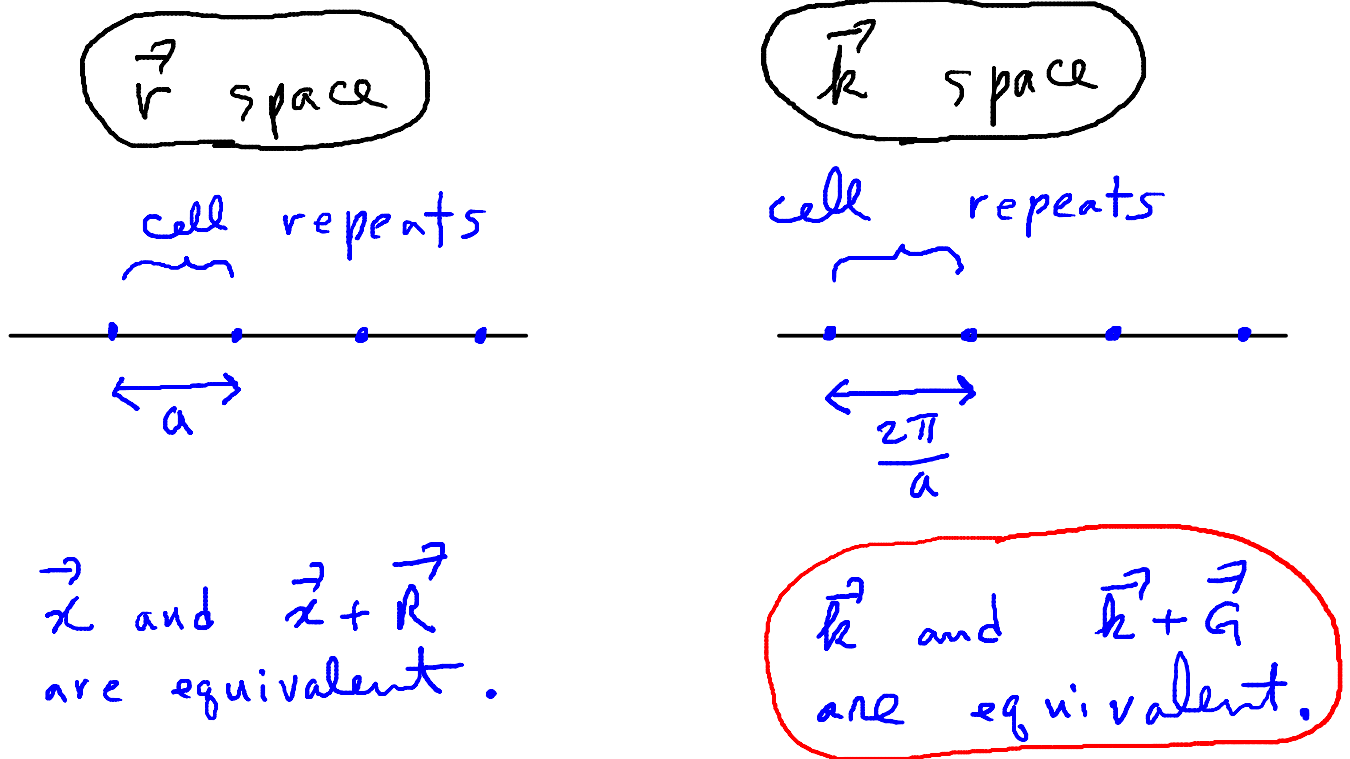 r⃗ space
cell repeats
a
x⃗ and x⃗ + R⃗
are equivalent.
k⃗ space
cell repeats
2π/a
k⃗ and k⃗ + G⃗
are equivalent.